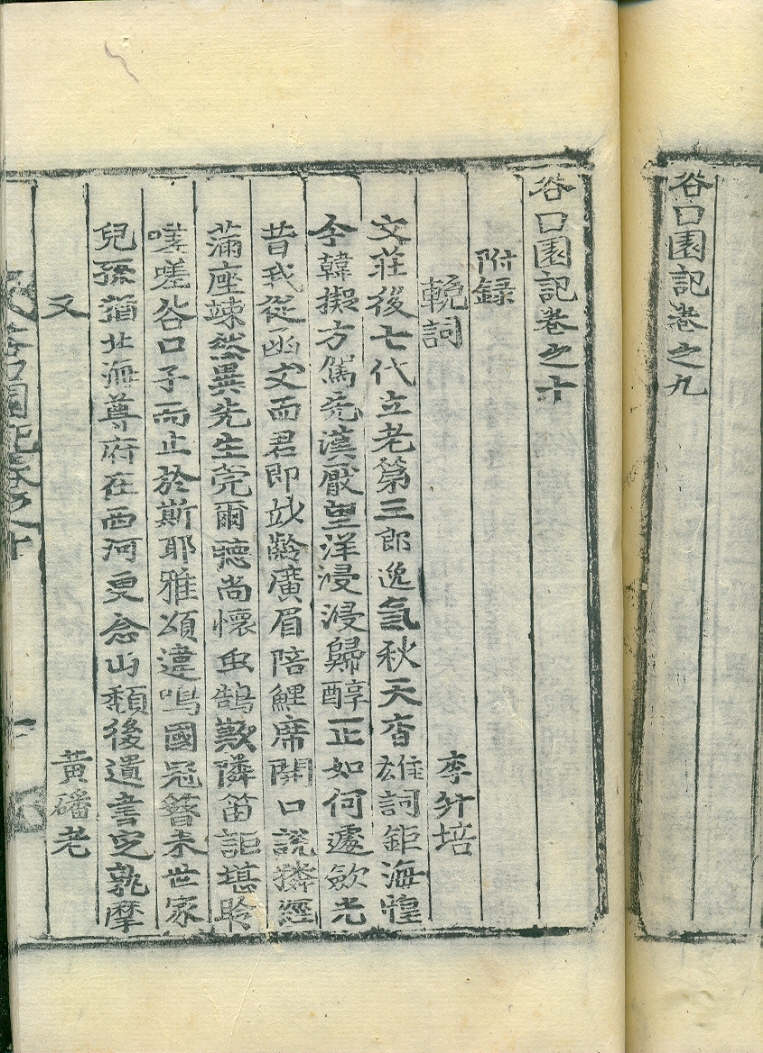 谷口園記卷之九
谷口園記卷之十
附録
輓詞
李升培
文莊後七代立老第三郎逸氣秋天杳雄詞鉅海惶
今韓擬方駕先漢厭望洋浸浸歸醇正如何遽歛光
昔我從函丈而君即玅齡廣眉陪鯉席開口說獜經
滿座竦然異先生莞爾聽尚懷虫鵠歎隣笛詎堪聆
嗟嗟谷口子而止於斯耶雅頌違鳴國冠簪未世家
兒孫猶北海尊府在西河更念山頹後遺書定孰摩
又
黃磻老
谷口園記卷之十